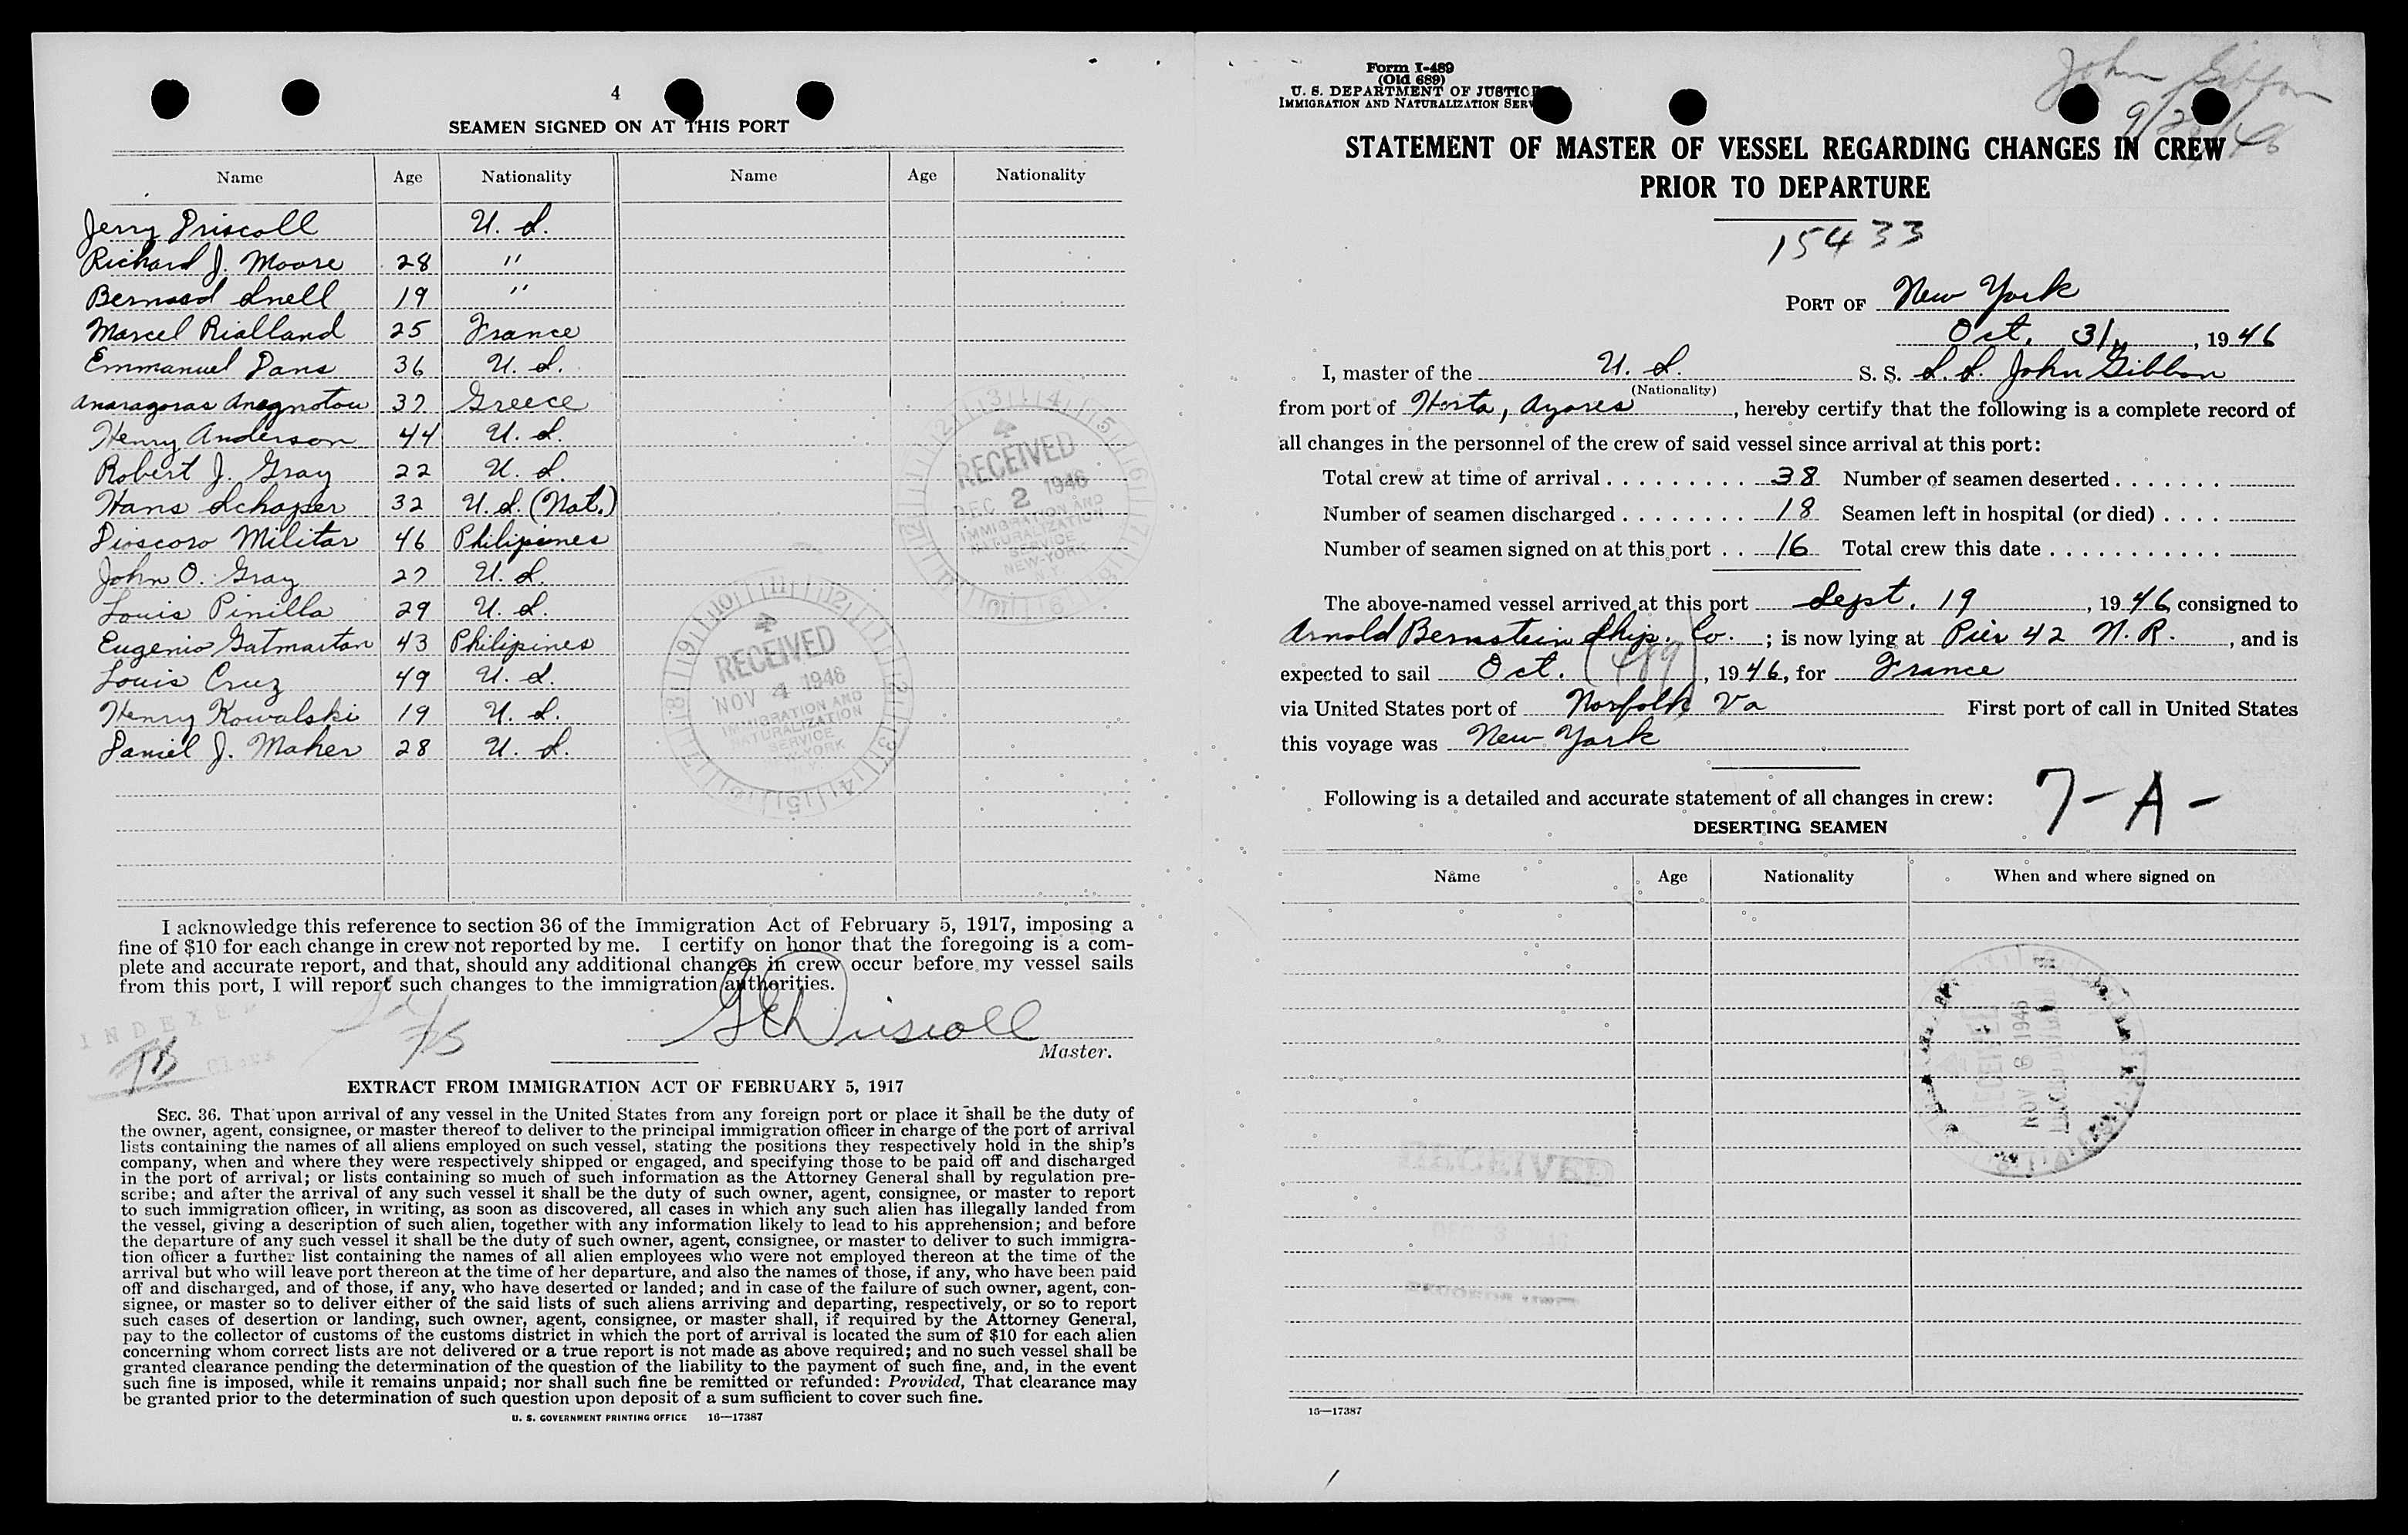 4
SEAMEN SIGNED ON AT THIS PORT
Name Age Nationality Name Age Nationality
Jerry Driscoll U. S.
Richard J. Moore 28 "
Bernard Snell 19 "
Marcel Rialland 25 France
Emmanuel Pans 36 U. S.
Anaragoras Anagnotou 37 Greece
Henry Anderson 44 U. S.
Robert J. Gray 22 U. S.
Hans Schaper 32 U. S. (Nat.)
Dioscoro Militar 46 Philipines
John O. Gray 27 U. S.
Louis Pinilla 29 U. S.
Eugenio Gatmaitan 43 Philipines
Louis Cruz 49 U. S.
Henry Kowalski 19 U. S.
Daniel J. Maher 28 U. S.
RECEIVED
DEC 2 1946
IMMIGRATION AND
NATURALIZATION
SERVICE
NEW-YORK
N.Y.
RECEIVED
NOV 4 1946
IMMIGRATION AND
NATURALIZATION
SERVICE
NEW-YORK
I acknowledge this reference to section 36 of the Immigration Act of February 5, 1917, imposing a
fine of $10 for each change in crew not reported by me. I certify on honor that the foregoing is a com-
plete and accurate report, and that, should any additional changes in crew occur before my vessel sails
from this port, I will report such changes to the immigration authorities.
INDEXED
Clerk
Driscoll
Master.
EXTRACT FROM IMMIGRATION ACT OF FEBRUARY 5, 1917
SEC. 36. That upon arrival of any vessel in the United States from any foreign port or place it shall be the duty of
the owner, agent, consignee, or master thereof to deliver to the principal immigration officer in charge of the port of arrival
lists containing the names of all aliens employed on such vessel, stating the positions they respectively hold in the ship's
company, when and where they were respectively shipped or engaged, and specifying those to be paid off and discharged
in the port of arrival; or lists containing so much of such information as the Attorney General shall by regulation pre-
scribe; and after the arrival of any such vessel it shall be the duty of such owner, agent, consignee, or master to report
to such immigration officer, in writing, as soon as discovered, all cases in which any such alien has illegally landed from
the vessel, giving a description of such alien, together with any information likely to lead to his apprehension; and before
the departure of any such vessel it shall be the duty of such owner, agent, consignee, or master to deliver to such immigra-
tion officer a further list containing the names of all alien employees who were not employed thereon at the time of the
arrival but who will leave port thereon at the time of her departure, and also the names of those, if any, who have been paid
off and discharged, and of those, if any, who have deserted or landed; and in case of the failure of such owner, agent, con-
signee, or master so to deliver either of the said lists of such aliens arriving and departing, respectively, or so to report
such cases of desertion or landing, such owner, agent, consignee, or master shall, if required by the Attorney General,
pay to the collector of customs of the customs district in which the port of arrival is located the sum of $10 for each alien
concerning whom correct lists are not delivered or a true report is not made as above required; and no such vessel shall be
granted clearance pending the determination of the question of the liability to the payment of such fine, and, in the event
such fine is imposed, while it remains unpaid; nor shall such fine be remitted or refunded: Provided, That clearance may
be granted prior to the determination of such question upon deposit of a sum sufficient to cover such fine.
U. S. GOVERNMENT PRINTING OFFICE 16—17387
Form I-489
(Old 689)
U. S. DEPARTMENT OF JUSTICE
IMMIGRATION AND NATURALIZATION SERV
John Gibbon
STATEMENT OF MASTER OF VESSEL REGARDING CHANGES IN CREW
PRIOR TO DEPARTURE
15433
PORT OF New York
Oct. 31, 1946
I, master of the U. S. S. S. S. S. John Gibbon
(Nationality)
from port of Horta, Azores, hereby certify that the following is a complete record of
all changes in the personnel of the crew of said vessel since arrival at this port:
Total crew at time of arrival 38 Number of seamen deserted
Number of seamen discharged 18 Seamen left in hospital (or died)
Number of seamen signed on at this port 16 Total crew this date
The above-named vessel arrived at this port Sept. 19, 1946, consigned to
Arnold Bernstein Ship. Co.; is now lying at Pier 42 N. R., and is
expected to sail Oct. (489), 1946, for France
via United States port of Norfolk, Va First port of call in United States
this voyage was New York
Following is a detailed and accurate statement of all changes in crew: 7-A-
DESERTING SEAMEN
Name Age Nationality When and where signed on
RECEIVED
NOV 8 1946
RECEIVED
16—17387